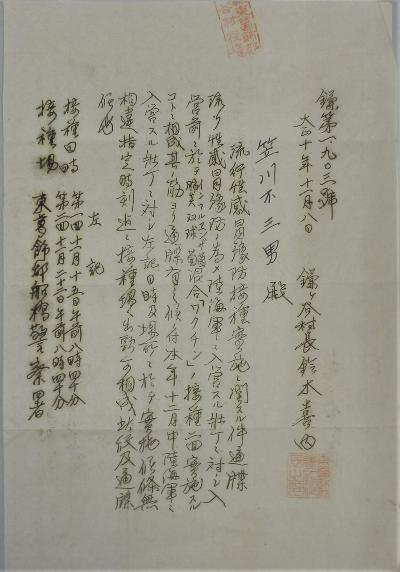 鎌第一九〇三號
大正十年十一月八日
鎌ヶ谷村長鈴木喜内
笠川不三男殿
流行性感冒豫防接種實施ニ関スル件通牒
流行性感冒豫防ノ為メ陸海軍ニ入営スル壮丁ニ対シ入
営前ニ於テ肺炎双球菌混合「ワクチン」ノ接種二回實施スル
コトニ相成其ノ筋ヨリ通牒有之候ニ付本年十二月中陸海軍ニ
入営スル壮丁ニ対シ左記日時及場所ニ於テ實施候條無
相違指定時刻迄ニ接種場ヘ出頭可相成此段及通牒
候也
左記
接種日時
第一回十一月十五日午前八時四十分
第二回十一月二十二日午前八時四十分
接種場
東葛飾郡船橋警察署